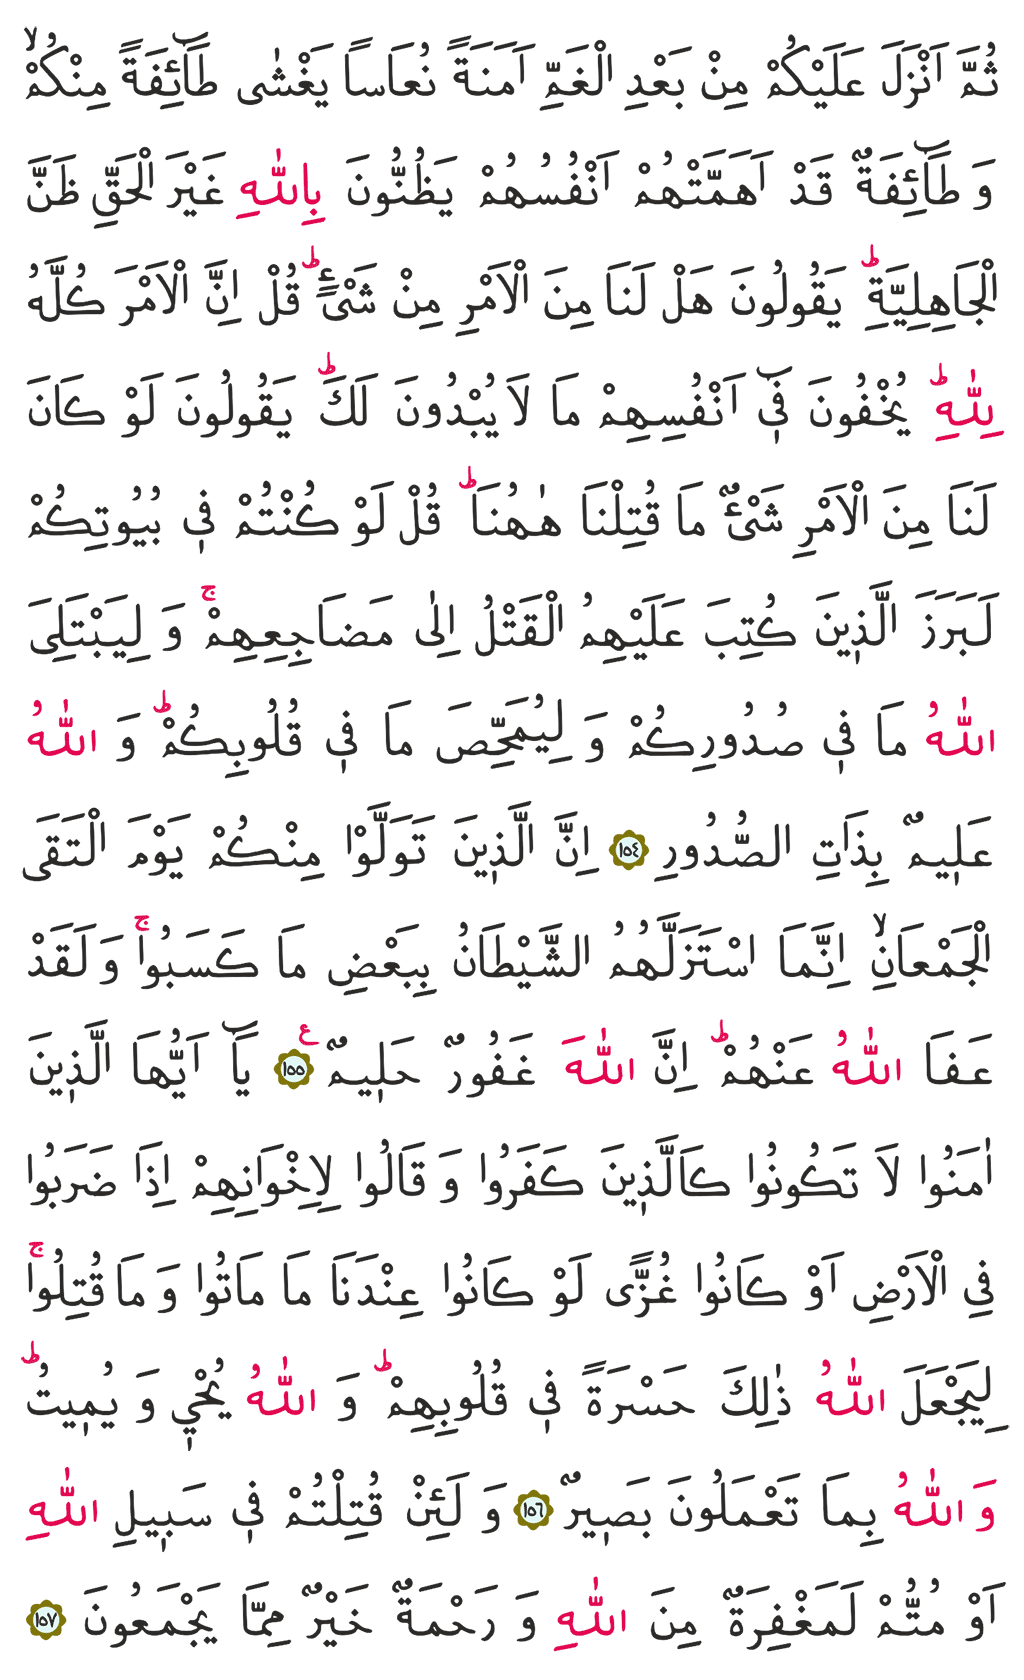 ثُمَّ اَنْزَلَ عَلَيْكُمْ مِنْ بَعْدِ الْغَمِّ اَمَنَةً نُعَاساً يَغْشٰى طَآئِفَةً مِنْكُمْۙ
وَ طَآئِفَةٌ قَدْ اَهَمَّتْهُمْ اَنْفُسُهُمْ يَظُنُّونَ بِاللّٰهِ غَيْرَ الْحَقِّ ظَنَّ
الْجَاهِلِيَّةِؕ يَقُولُونَ هَلْ لَنَا مِنَ الْاَمْرِ مِنْ شَیْءٍؕ قُلْ اِنَّ الْاَمْرَ كُلَّهُ
لِلّٰهِؕ يُخْفُونَ فٖٓي اَنْفُسِهِمْ مَا لَا يُبْدُونَ لَكَؕ يَقُولُونَ لَوْ كَانَ
لَنَا مِنَ الْاَمْرِ شَیْءٌ مَا قُتِلْنَا هٰهُنَاؕ قُلْ لَوْ كُنْتُمْ فٖي بُيُوتِكُمْ
لَبَرَزَ الَّذٖينَ كُتِبَ عَلَيْهِمُ الْقَتْلُ اِلٰى مَضَاجِعِهِمْۚ وَ لِيَبْتَلِیَ
اللّٰهُ مَا فٖي صُدُورِكُمْ وَ لِيُمَحِّصَ مَا فٖي قُلُوبِكُمْؕ وَ اللّٰهُ
عَلٖيمٌ بِذَاتِ الصُّدُورِ ﴿١٥٤﴾ اِنَّ الَّذٖينَ تَوَلَّوْا مِنْكُمْ يَوْمَ الْتَقَى
الْجَمْعَانِۙ اِنَّمَا اسْتَزَلَّهُمُ الشَّيْطَانُ بِبَعْضِ مَا كَسَبُواۚ وَ لَقَدْ
عَفَا اللّٰهُ عَنْهُمْؕ اِنَّ اللّٰهَ غَفُورٌ حَلٖيمٌࣖ ﴿١٥٥﴾ يَٓا اَيُّهَا الَّذٖينَ
اٰمَنُوا لَا تَكُونُوا كَالَّذٖينَ كَفَرُوا وَ قَالُوا لِاِخْوَانِهِمْ اِذَا ضَرَبُوا
فِي الْاَرْضِ اَوْ كَانُوا غُزًّى لَوْ كَانُوا عِنْدَنَا مَا مَاتُوا وَ مَا قُتِلُواۚ
لِيَجْعَلَ اللّٰهُ ذٰلِكَ حَسْرَةً فٖي قُلُوبِهِمْؕ وَ اللّٰهُ يُحْيٖ وَ يُمٖيتُؕ
وَ اللّٰهُ بِمَا تَعْمَلُونَ بَصٖيرٌ ﴿١٥٦﴾ وَ لَئِنْ قُتِلْتُمْ فٖي سَبٖيلِ اللّٰهِ
اَوْ مُتُّمْ لَمَغْفِرَةٌ مِنَ اللّٰهِ وَ رَحْمَةٌ خَيْرٌ مِمَّا يَجْمَعُونَ ﴿١٥٧﴾